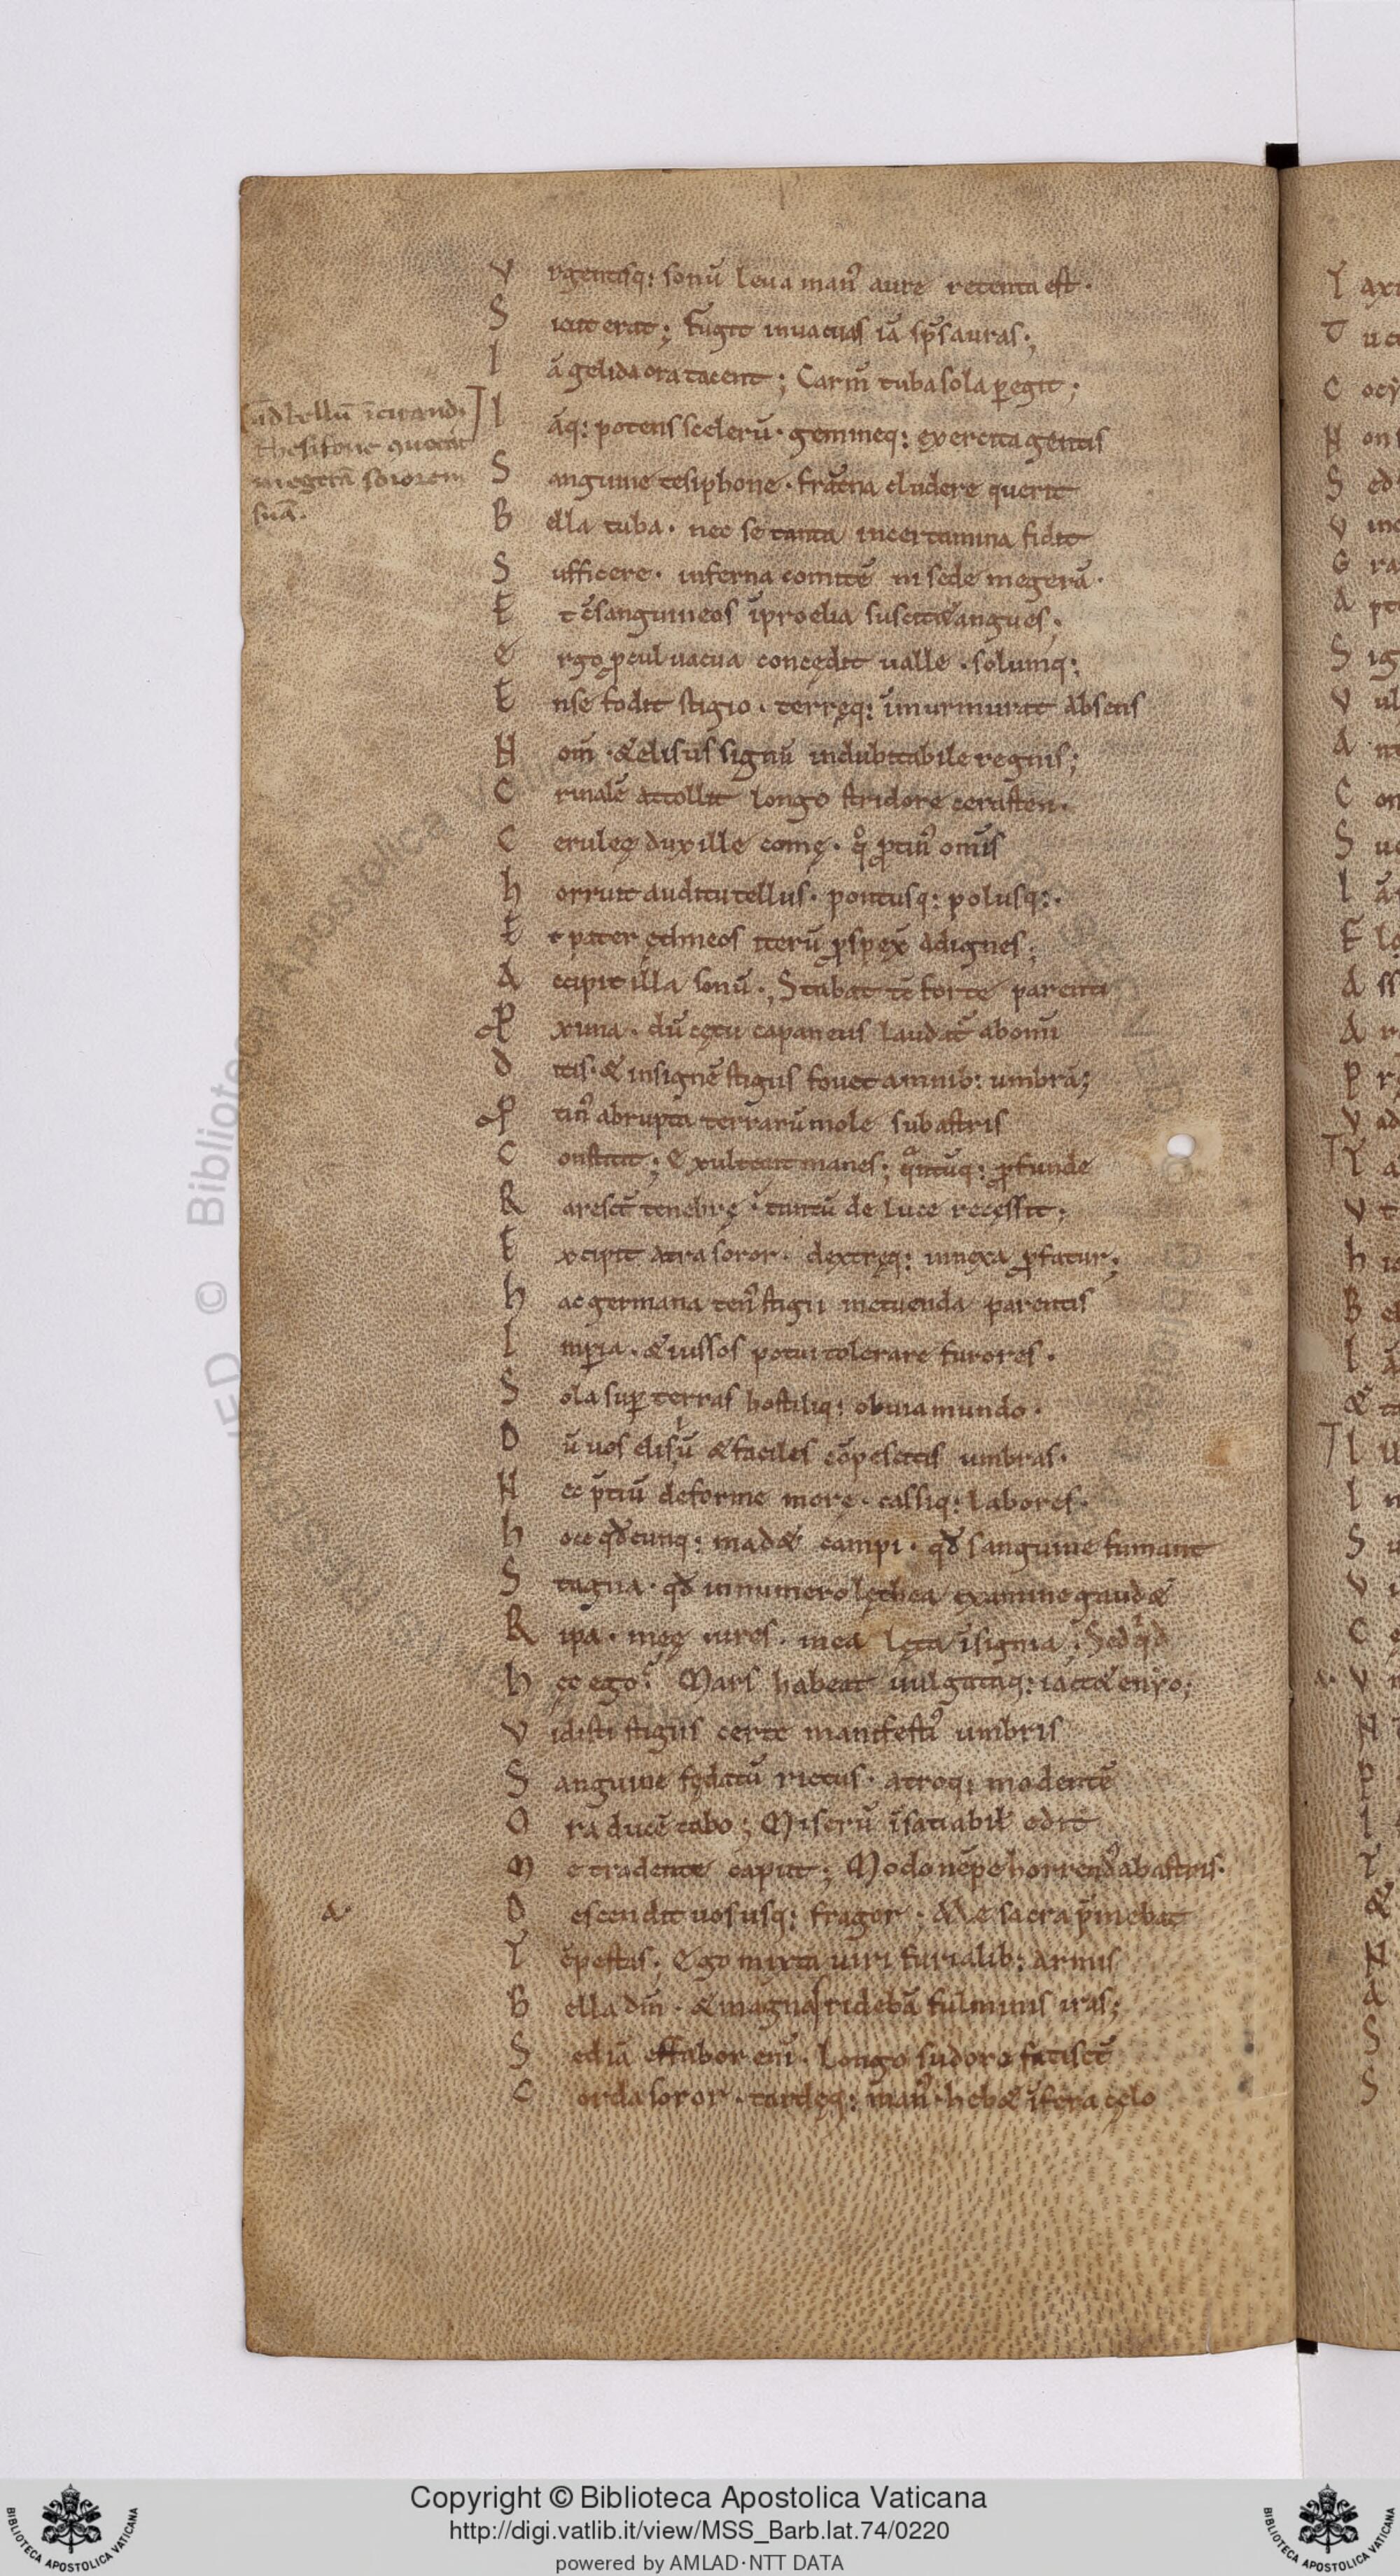 V rgentisq: sonū leua man᾿ aure retenta est.
S icut erat; Fugit inuacuas iā sp̄s auras;
I ā gelida ora tacent; Carm̄ tuba sola p̲egit;
I āq: potens scelerū. gemineq: exercita gentis
Ad bellū īcitandū
thesifone quærit
megerā sororem
suā.
S anguine tesiphone. fraterna cludere querit
B ella tuba. nec se tanta incertamina fidit
S ufficere. inferna comitē ni sede megerā.
E t c̄sanguineos īproelia suscitæt angues;
E rgo ꝓcul uacua concędit ualle. solumq:
E nse fodit stigio. terręq: īmurmurat absens
N om̄. & elisiis signū indubitabile regnis;
C rinalē attollit longo stridore cerasten.
C erulеę dux ille comę. q° ꝓtin᾿ om̄is
h orruit auditu tellus. pontusq: polusq:.
E t pater ęthneos iterū ꝓspex̄ adignes;
A ccipit illa sonū; Stabat tc̄ forte parenti
P xima. dū cętu capaneus laudat᾿ abomī
D itis. & insignē stigiis fouet amnib: umbrā;
P tin᾿ abrupta terrarū mole sub astris
C onstitit; Exultant manes; q̄ntūq: ꝓfunde
R aresct̄ tenebrę. tantū de luce recęssit;
E xcipit atra soror. dextręq: innexa ꝓfatur;
h ac germana ten᾿ stigii metuenda parentis
I mp̲ia. & iussos potui tolerare furores.
S ola sup̲ terras hostiliq: obuia mundo.
D ū uos elisiū & faciles cōpescitis umbras.
N ec p̄tiū deforme more. cassiq: labores.
h oc qđcunq: mad& campi. qđ sanguine fumant
S tagna. qđ innumero lęthea examine gaud&
R ipa. męę uires. mea lęta īsignia. Sed qđ
h ęc ego? Mars habeat uulgataq: iact& enyo;
V idisti stigiis certe manifest᾿ umbris
S anguine fędatū rictus. atroq; madentē
O ra ducē tabo; Miserū īsatiabił edit
M e tradente caput; Modo nēpe horrend᾿ abastris.
D escendit uos usq: fragor; Me sacra p̄mebat
T ēpestas; Ego mixta uiri furialib: armis
B ella dm̄. & magnas ridebā fulminis iras;
S ed iā effabor enī. longo sudore fatisct̄
C orda soror. tardęq: man᾿. heb& īfera cęlo
Copyright © Biblioteca Apostolica Vaticana
http://digi.vatlib.it/view/MSS_Barb.lat.74/0220
powered by AMLAD·NTT DATA